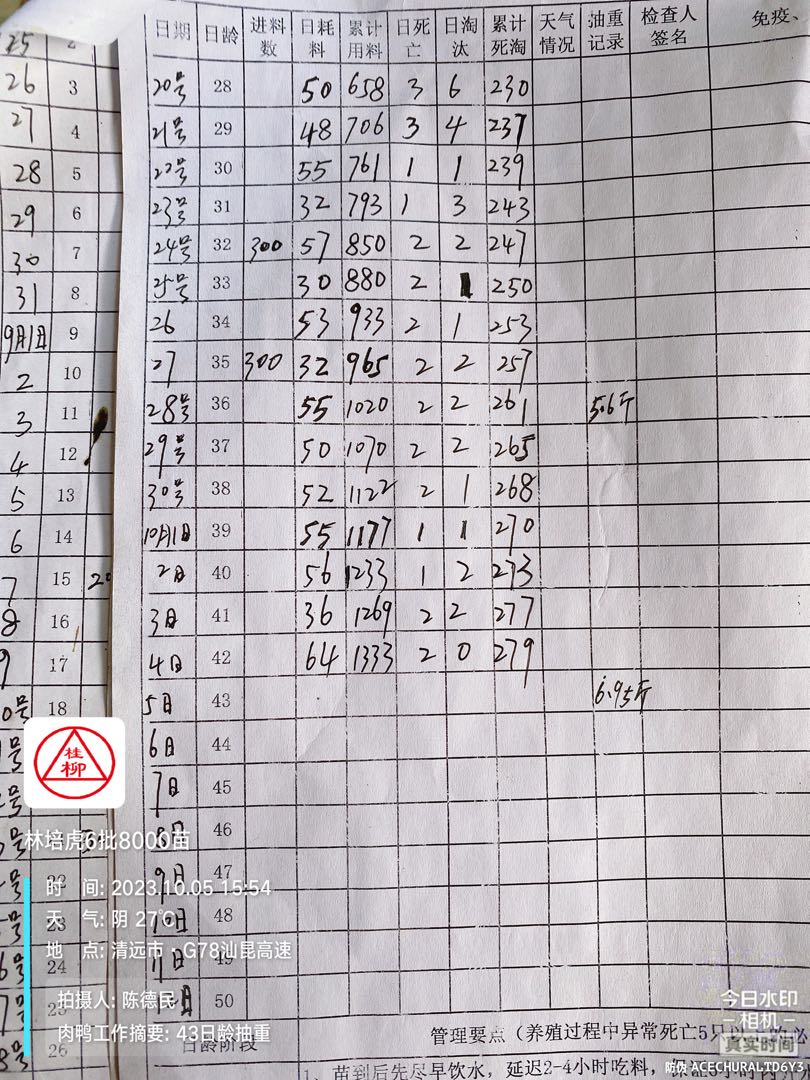 日期 日龄 进料数 日耗料 累计用料 日死亡 日淘汰 累计死淘 天气情况 抽重记录 检查人签名 免疫、
20号 28 50 658 3 6 230
21号 29 48 706 3 4 237
22号 30 55 761 1 1 239
23号 31 32 793 1 3 243
24号 32 300 57 850 2 2 247
25号 33 30 880 2 1 250
26 34 53 933 2 1 253
27 35 300 32 965 2 2 257
28号 36 55 1020 2 2 261 5.6斤
29号 37 50 1070 2 2 265
30号 38 52 1122 2 1 268
10月1日 39 55 1177 1 1 270
2日 40 56 1233 1 2 273
3日 41 36 1269 2 2 277
4日 42 64 1333 2 0 279
5日 43 6.95斤
6日 44
7日 45
8日 46
9日 47
10日 48
11日 49
50
日龄阶段 管理要点（养殖过程中异常死亡5只以
1、苗到后先尽早饮水，延迟2-4小时吃料，
25 2
26 3
27 4
28 5
29 6
30 7
31 8
9月1日 9
2 10
3 11
4 12
5 13
6 14
7 15
8 16
9 17
18
22
23
24
25
26
桂柳
林培虎6批8000苗
时 间: 2023.10.05 15:54
天 气: 阴 27℃
地 点: 清远市·G78汕昆高速
拍摄人: 陈德民
肉鸭工作摘要: 43日龄抽重
今日水印
相机
真实时间
防伪 ACECHURALTD6Y3